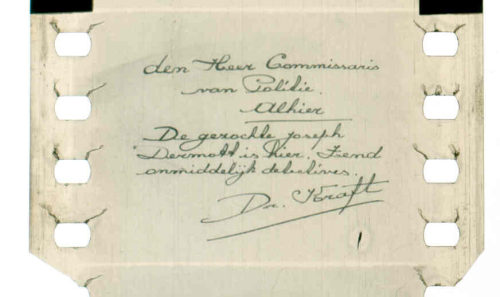 den Heer Commissaris
van Politie.
Alhier
De gezochte Joseph
Dermott is hier. Zend
onmiddelijk detectives.
Dr. Kraft